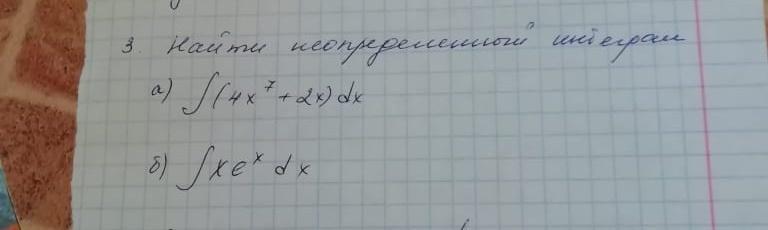 3. Найти неопределенный интеграл
а) ∫(4x⁷+2x)dx
б) ∫xeˣ dx